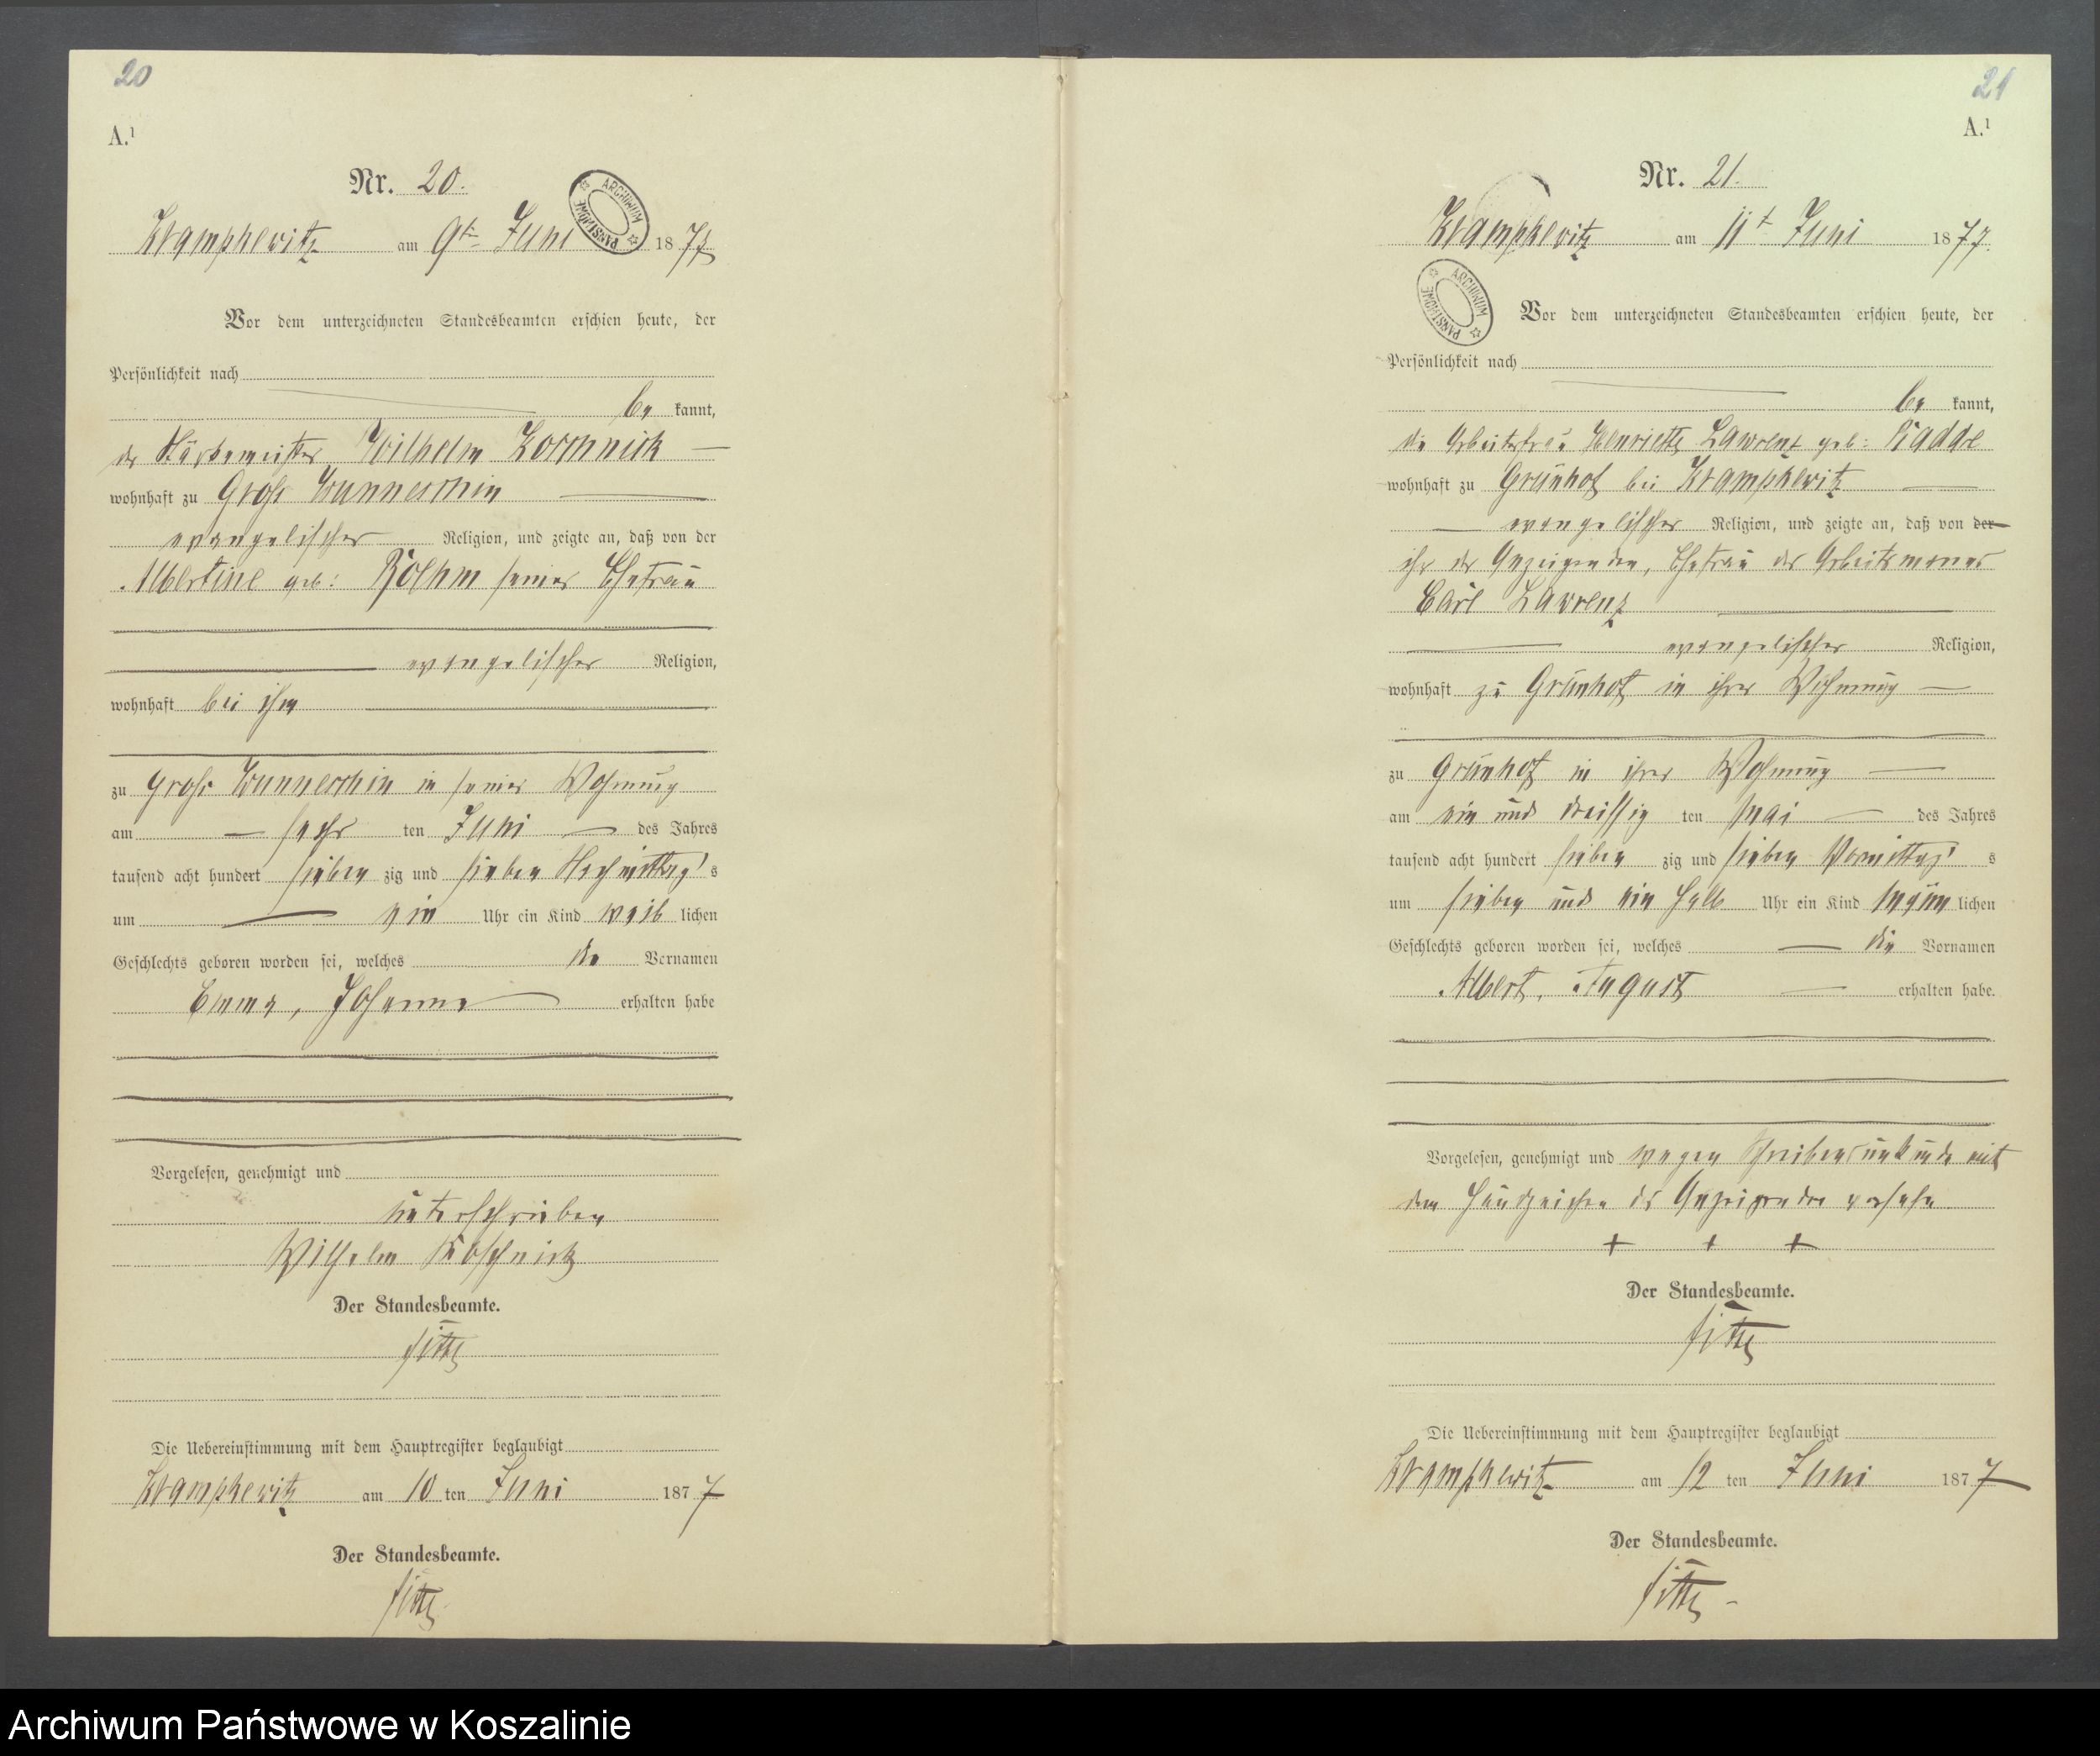 20
A.¹
Nr. 20.
ARCHIWUM PAŃSTWOWE
Krampkewitz am 9t Juni 1877
Vor dem unterzeichneten Standesbeamten erschien heute, der
Persönlichkeit nach
be kannt,
der Wilhelm
wohnhaft zu Groß Wunneschin
evangelischer Religion, und zeigte an, daß von der
Albertine geb: Boehm seiner Ehefrau
evangelischer Religion,
wohnhaft bei ihm
zu Groß Wunneschin in seiner Wohnung
am sechs ten Juni des Jahres
tausend acht hundert sieben zig und sieben Nachmittag s
um ein Uhr ein Kind weib lichen
Geschlechts geboren worden sei, welches die Vornamen
Emma, Johanna erhalten habe
Vorgelesen, genehmigt und
unterschrieben
Wilhelm Koschnick
Der Standesbeamte.
Die Uebereinstimmung mit dem Hauptregister beglaubigt
Krampkewitz am 10 ten Juni 1877
Der Standesbeamte.
21
A.¹
Nr. 21.
Krampkewitz am 11t Juni 1877.
ARCHIWUM PAŃSTWOWE
Vor dem unterzeichneten Standesbeamten erschien heute, der
Persönlichkeit nach
be kannt,
die Arbeitsfrau Henriette Lawrenz geb: Radde
wohnhaft zu Grünhof bei Krampkewitz
evangelischer Religion, und zeigte an, daß von der
ihr der Anzeigenden, Ehefrau des Arbeitsmanns
Carl Lawrenz
evangelischer Religion,
wohnhaft zu Grünhof in ihrer Wohnung
zu Grünhof in ihrer Wohnung
am ein und dreissig ten Mai des Jahres
tausend acht hundert sieben zig und sieben Vormittag s
um sieben und ein halb Uhr ein Kind männ lichen
Geschlechts geboren worden sei, welches die Vornamen
Albert, August erhalten habe.
Vorgelesen, genehmigt und wegen Schreibensunkunde mit
dem Handzeichen der Anzeigenden versehn
+ + +
Der Standesbeamte.
Die Uebereinstimmung mit dem Hauptregister beglaubigt
Krampkewitz am 12 ten Juni 1877
Der Standesbeamte.
Archiwum Państwowe w Koszalinie